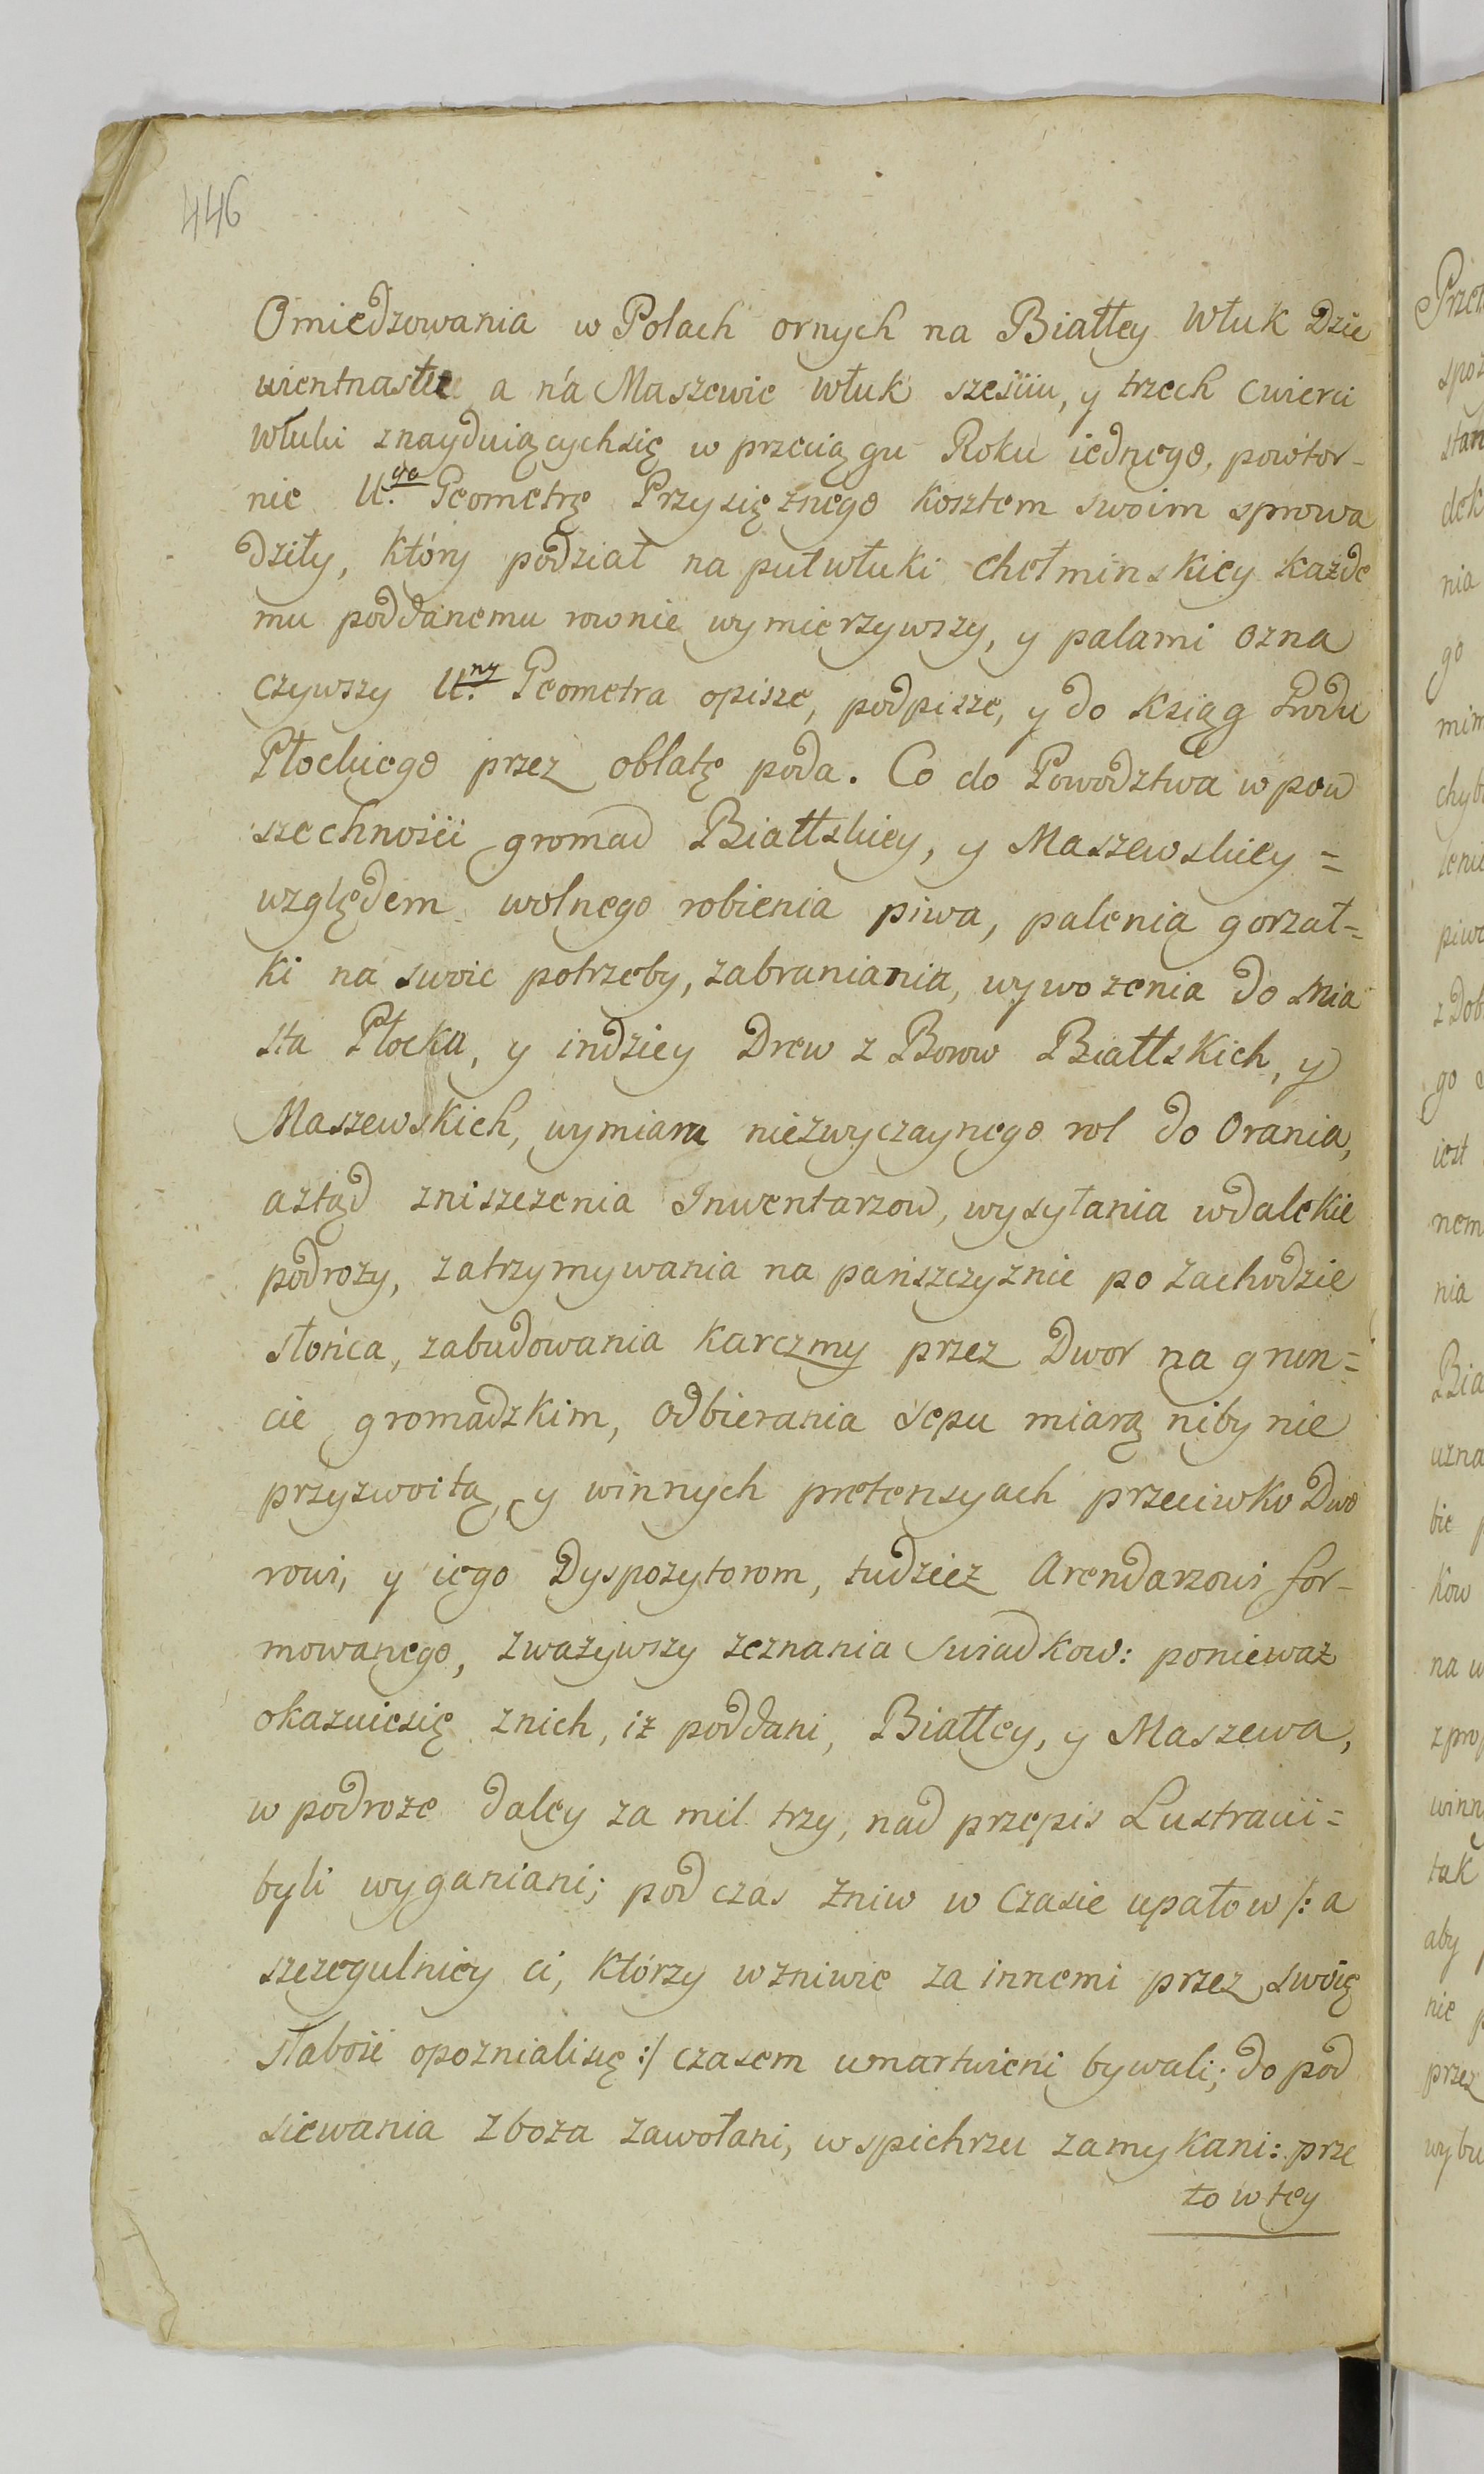 446
Omiedzowania w Polach ornych na Białley Włuk Dzie
wientnastu a na Maszewie włuk sześciu, y trzech cwierci
włuki znayduiącychsię w przeciągu Roku iednego, powtor-
nie U.go Geometrę Przysięznego kosztem swoim sprowa
dziły, który podział na pułwłuki chełminskiey każde
mu poddanemu rownie wymierzywszy, y palami ozna
czywszy U.ny Geometra opisze, podpisze, y do Ksiąg Grodu
Płockiego przez oblatę poda. Co do Powodztwa w pow
szechności gromad Białłskiey, y Maszewskiey =
względem wolnego robienia piwa, palenia gorzał=
ki na swoie potrzeby, zabraniania, wywozenia do Mia
sta Płocka, y indziey Drew z Borow Białłskich, y
Maszewskich, wymiaru niezwyczaynego rol do Orania,
aztąd zniszczenia Inwentarzow, wysyłania wdalekie
podrozy, zatrzymywania na pańszczyznie po zachodzie
słońca, zabudowania Karczmy przez Dwor na grun=
cie gromadzkim, odbierania sepu miarą niby nie
przyzwoitą, y winnych pretensyach przeciwko Dwo
rowi, y iego Dyspozytorom, tudzież Arendarzowi for-
mowanego, zważywszy zeznania Swiadkow: ponieważ
okazuiesię znich, iż poddani, Białley, y Maszewa,
w podroze daley za mil trzy, nad przepis Lustracii =
byli wyganiani; pod czas zniw w czasie upałow /: a
szczegulniey ci, którzy wzniwie za innemi przez swoię
słabość opoznialisię :/ czasem umartwieni bywali; do pod
siewania zboza zawołani, w spichrzu zamykani: prze
to w tey